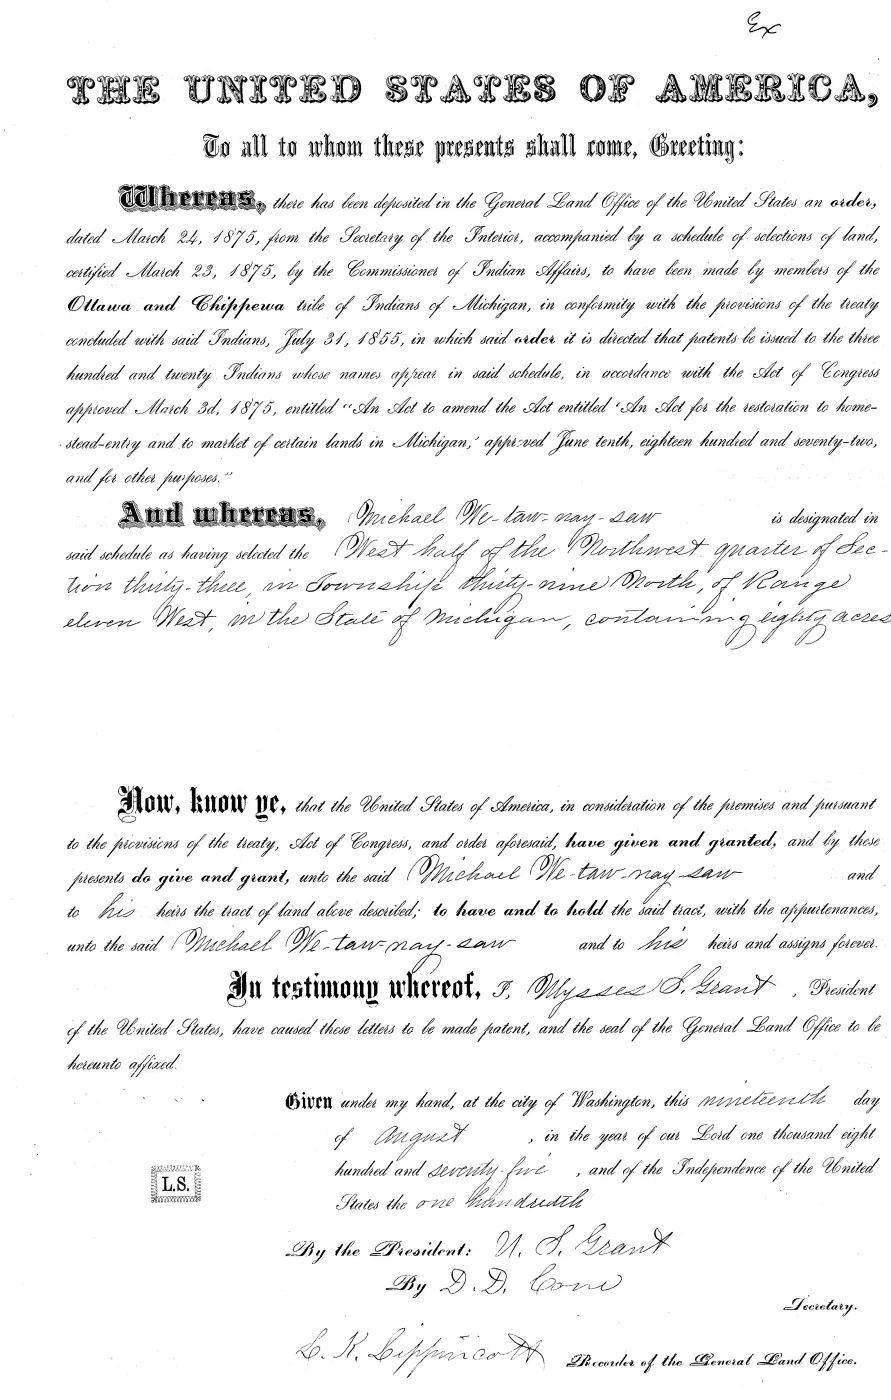 Ex
THE UNITED STATES OF AMERICA,
To all to whom these presents shall come, Greeting:
Whereas, there has been deposited in the General Land Office of the United States an order,
dated March 24, 1875, from the Secretary of the Interior, accompanied by a schedule of selections of land,
certified March 23, 1875, by the Commissioner of Indian Affairs, to have been made by members of the
Ottawa and Chippewa tribe of Indians of Michigan, in conformity with the provisions of the treaty
concluded with said Indians, July 31, 1855, in which said order it is directed that patents be issued to the three
hundred and twenty Indians whose names appear in said schedule, in accordance with the Act of Congress
approved March 3d, 1875, entitled "An Act to amend the Act entitled 'An Act for the restoration to home-
stead-entry and to market of certain lands in Michigan,' approved June tenth, eighteen hundred and seventy-two,
and for other purposes."
And whereas, Michael We-taw-nay-saw is designated in
said schedule as having selected the West half of the Northwest quarter of Sec-
tion thirty-three, in Township thirty-nine North, of Range
eleven West, in the State of Michigan, containing eighty acres
Now, know ye, that the United States of America, in consideration of the premises and pursuant
to the provisions of the treaty, Act of Congress, and order aforesaid, have given and granted, and by these
presents do give and grant, unto the said Michael We-taw-nay-saw and
to his heirs the tract of land above described; to have and to hold the said tract, with the appurtenances,
unto the said Michael We-taw-nay-saw and to his heirs and assigns forever.
In testimony whereof, I, Ulysses S. Grant, President
of the United States, have caused these letters to be made patent, and the seal of the General Land Office to be
hereunto affixed.
Given under my hand, at the city of Washington, this nineteenth day
of August, in the year of our Lord one thousand eight
hundred and seventy-five, and of the Independence of the United
States the one hundredth
L.S.
By the President: U. S. Grant
By D. D. Cone
Secretary.
L. K. Lippincott Recorder of the General Land Office.